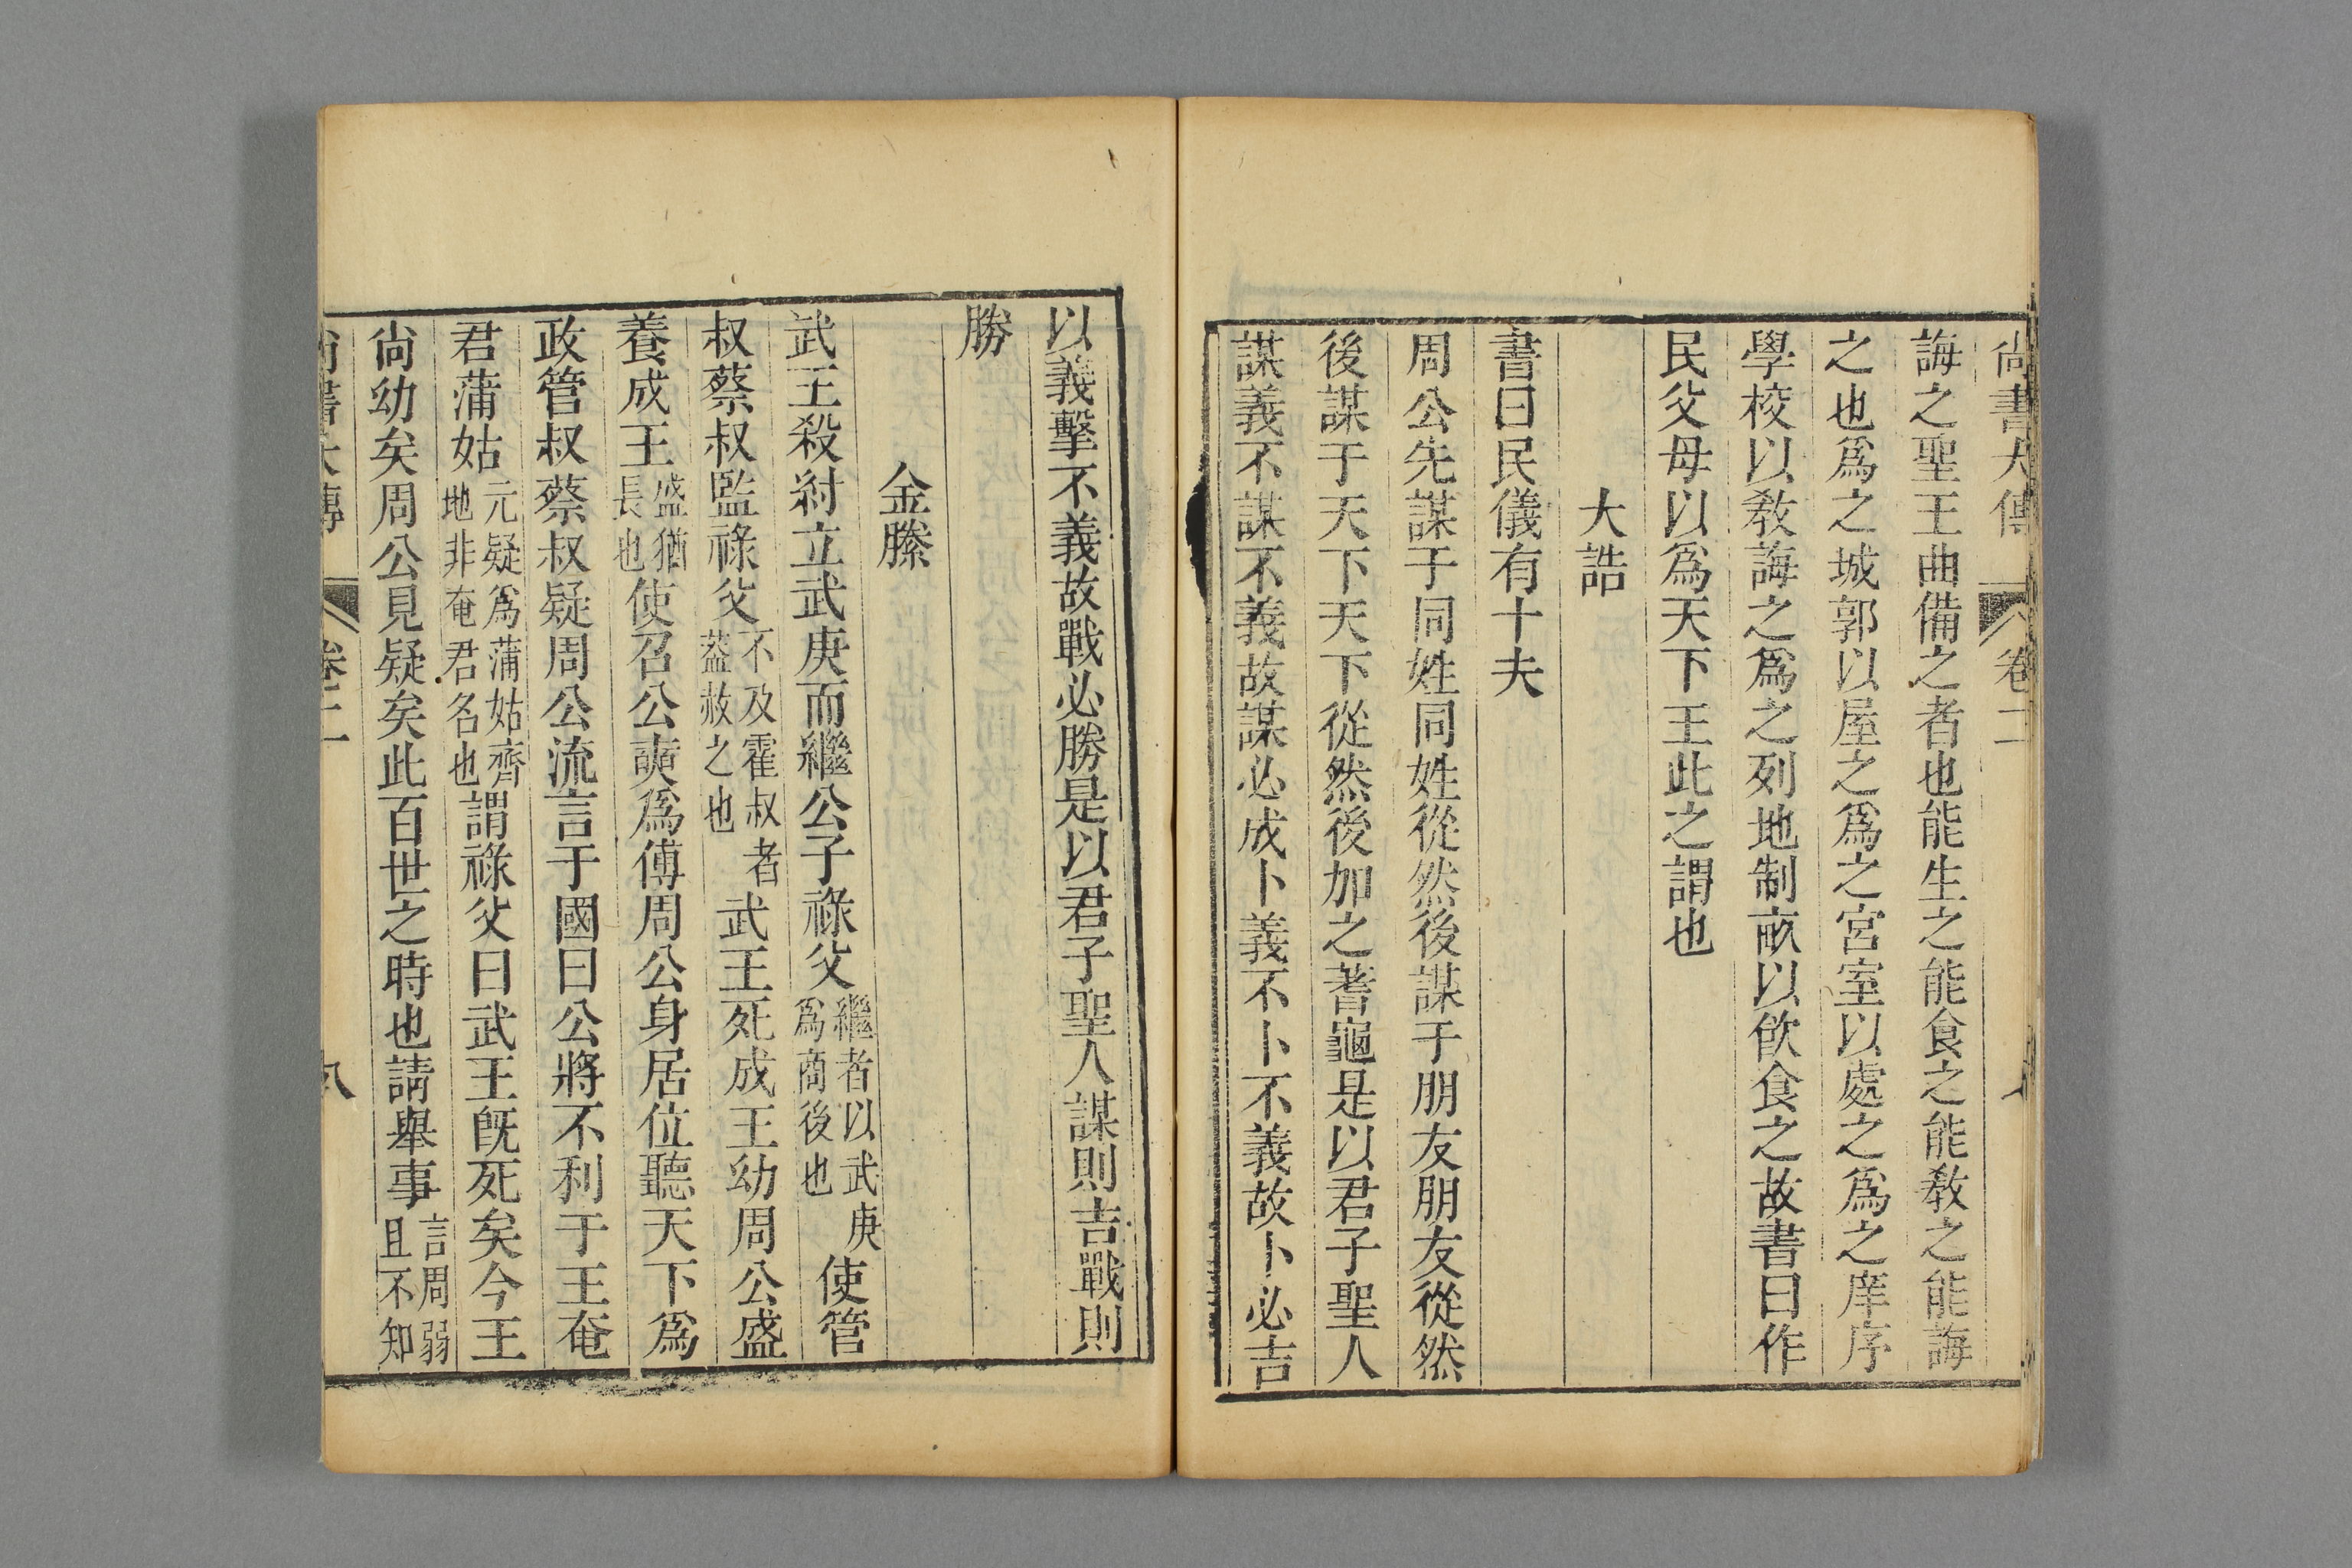 尚書大傳 卷二
誨之聖王曲備之者也能生之能食之能教之能誨
之也爲之城郭以居之爲之宮室以處之爲之庠序
學校以教誨之爲之列地制畝以飲食之故書曰作
民父母以爲天下王此之謂也
大誥
書曰民儀有十夫
周公先謀于同姓同姓從然後謀于朋友朋友從然
後謀于天下天下從然後加之蓍龜是以君子聖人
謀義不謀不義故謀必成卜義不卜不義故卜必吉
以義擊不義故戰必勝是以君子聖人謀則吉戰則
勝
金縢
武王殺紂立武庚而繼公子祿父繼者以武庚爲商後也使管
叔蔡叔監祿父不及霍叔者葢赦之也武王死成王幼周公盛
養成王盛猶長也使召公奭爲傅周公身居位聽天下爲
政管叔蔡叔疑周公流言于國曰公將不利于王奄
君蒲姑元疑爲蒲姑齊地非奄君名也謂祿父曰武王旣死矣今王
尚幼矣周公見疑矣此百世之時也請舉事言周弱且不知
尚書大傳 卷二 八